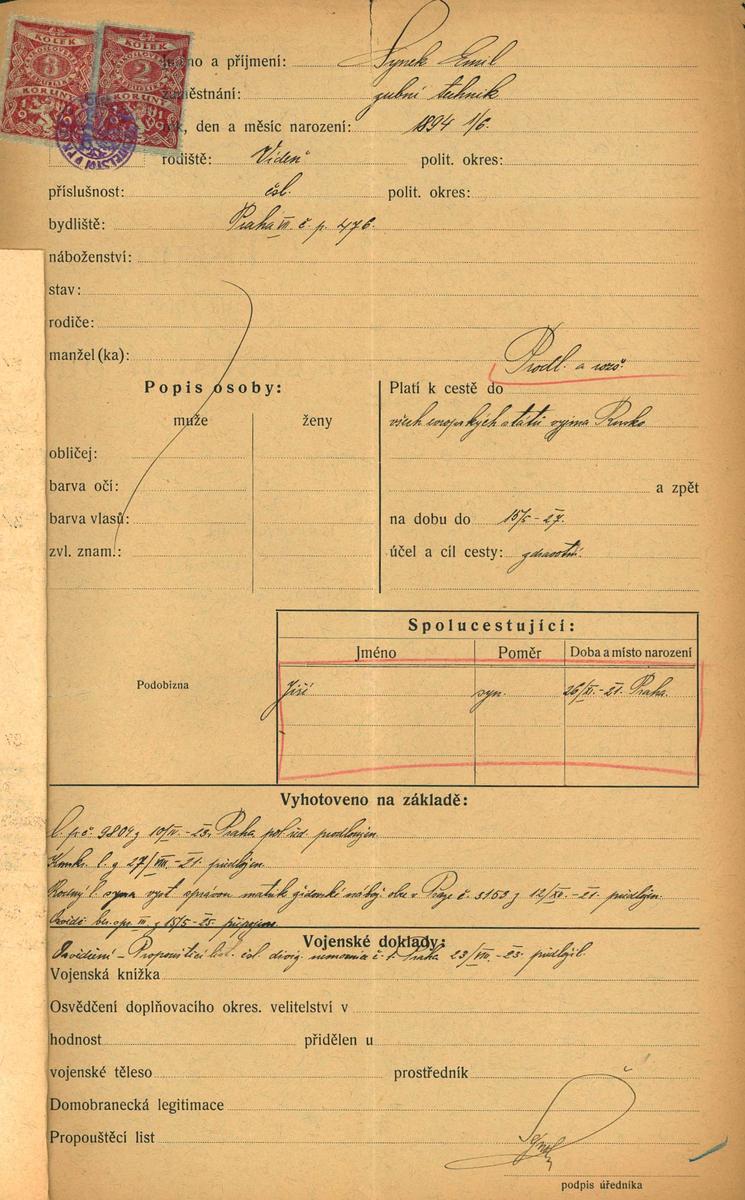 KOLEK KOLEK
3 2
KORUNY KORUNY
jméno a příjmení: Synek Emil
zaměstnání: zubní technik
rok, den a měsíc narození: 1894 1/6.
rodiště: Vídeň polit. okres:
příslušnost: čsl. polit. okres:
bydliště: Praha VII. č. p. 476.
náboženství:
stav:
rodiče:
manžel (ka):
Prodl. a rozš.
Popis osoby:
muže ženy
obličej:
barva očí:
barva vlasů:
zvl. znam.:
Platí k cestě do
všech evropských států vyjma Rusko
a zpět
na dobu do 15/5 - 27.
účel a cíl cesty: zdravotní.
Spolucestující:
Jméno Poměr Doba a místo narození
Podobizna
Jiří syn. 26/XI. - 21. Praha.
Vyhotoveno na základě:
C. p. č. 9804 z 10/IV. - 23. Praha pol. řed. prodloužen
l. z 27/VIII. - 21. předložen
Rodný l. syna vyst. správou matrik židovské náb. obce v Praze č. 5153 z 12/XII. - 21. předložen.
z 15/5 - 25. připojeno
Vojenské doklady:
Osvědčení - Propouštěcí list. čsl. diviz. nemocnice č. 1. Praha 23/VIII. - 23. předložil.
Vojenská knížka
Osvědčení doplňovacího okres. velitelství v
hodnost přidělen u
vojenské těleso prostředník
Domobranecká legitimace
Propouštěcí list
podpis úředníka